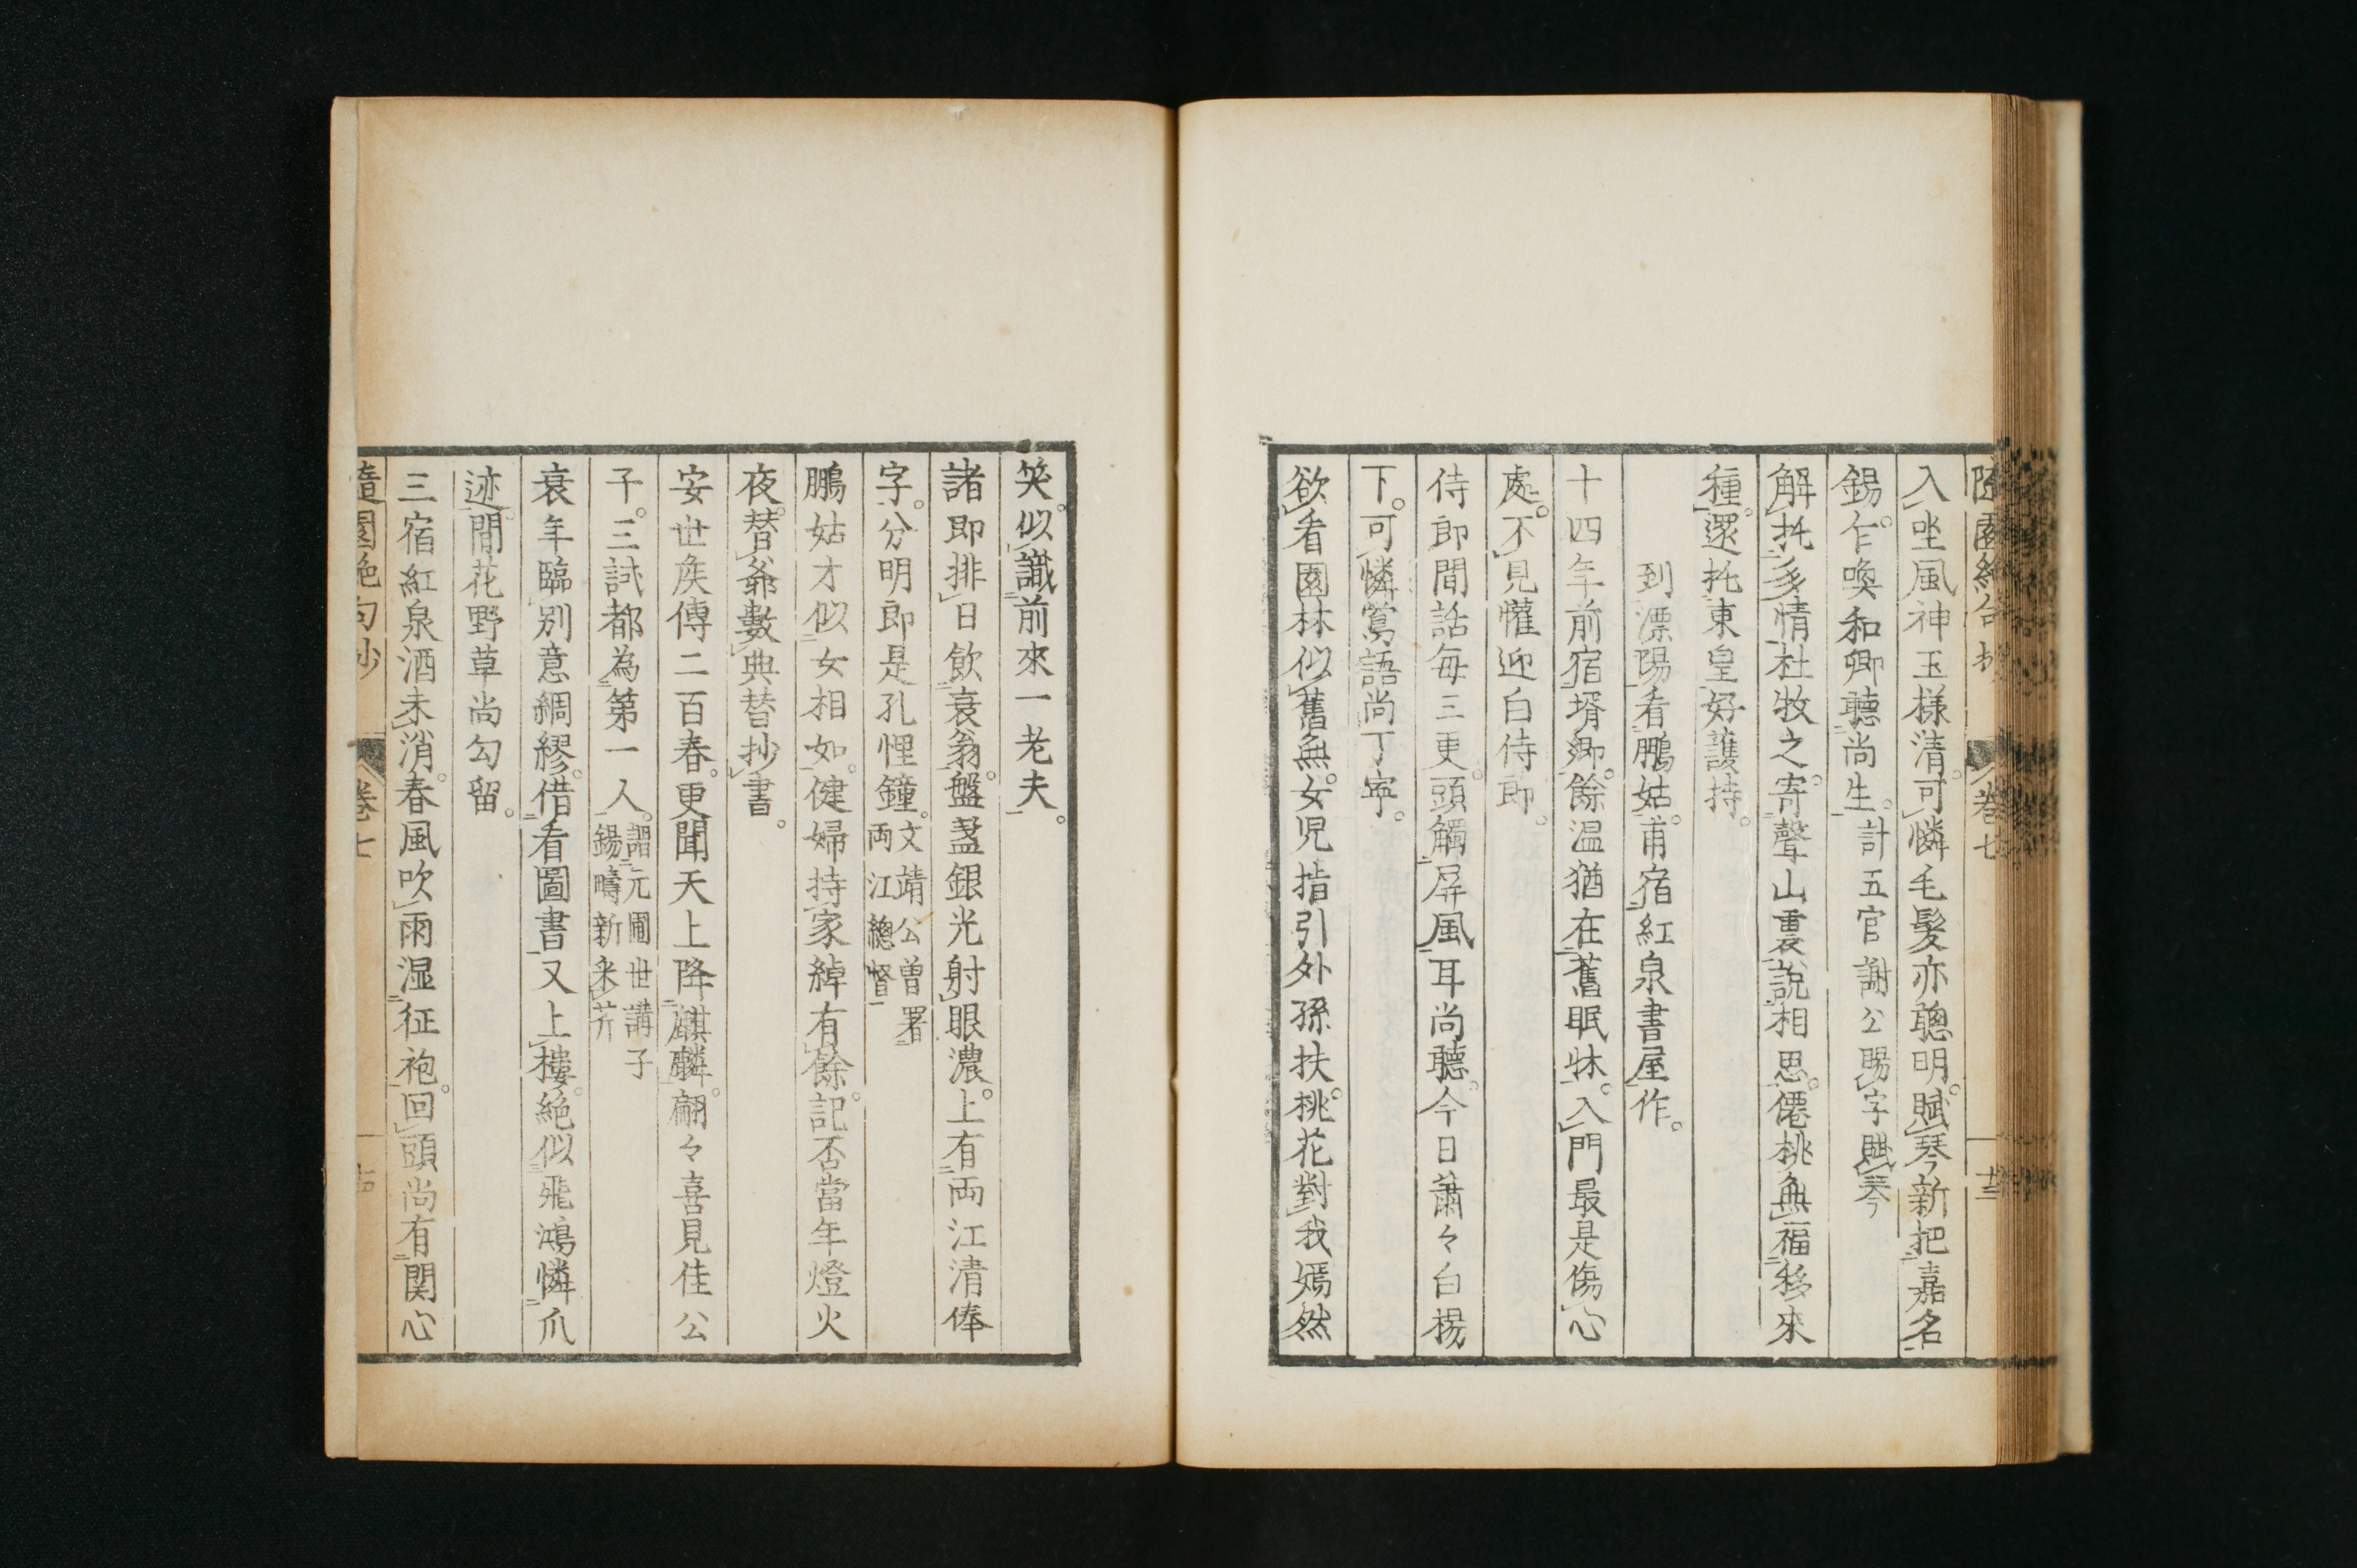 隨園絶句抄 卷七 十三
入坐風神玉様清。可憐毛髪亦聰明。賦琴新把嘉名
錫。乍喚和卿聽尚生。計五官謝公賜字賦琴
解托多情杜牧之。寄聲山裏説相思。僊桃無福移來
種。還托東皇好護持。
到漂陽看鵬姑。甫宿紅泉書屋作。
十四年前宿壻郷。餘温猶在舊眠牀。入門最是傷心
處。不見懽迎白侍郎。
侍郎間話毎三更。頭觸屏風耳尚聽。今日蕭々白楊
下。可憐鶯語尚丁寧。
欲看園林似舊無。女児指引外孫扶。桃花對我嫣然
笑。似識前來一老夫。
諸郎排日飲衰翁。盤盞銀光射眼濃。上有両江清俸
字。分明即是孔悝鐘。文靖公曽署
両江總督
鵬姑才似女相如。健婦持家綽有餘。記否當年燈火
夜。替爺數典替抄書。
安世矦傳二百春。更聞天上降麒麟。翩々喜見佳公
子。三試都為第一人。謂元圃世講子
錫疇新釆芹
衰年臨別意綢繆。借看圖書又上樓。絶似飛鴻憐爪
迹。間花野草尚勾留。
三宿紅泉酒未消。春風吹雨湿征袍。回頭尚有関心
隨園絶句抄 卷七 十四